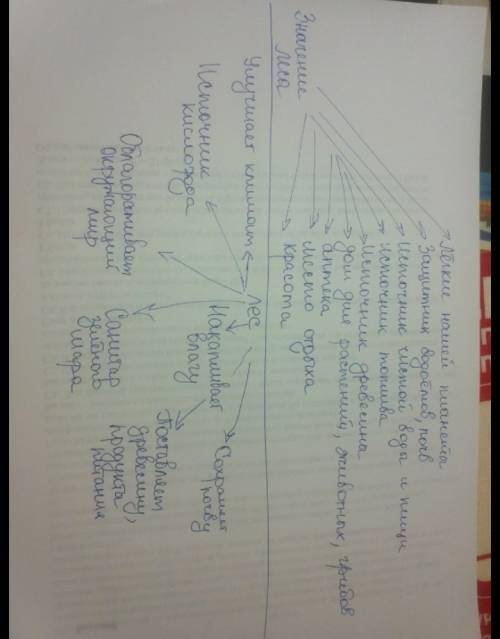 Значение
леса
Лёгкие нашей планеты
Защитник водоёмов, почв
Источник чистой воды и пищи
источник топлива
Источник древесины
дом для растений, животных, грибов
аптека
место отдыха
красота
Улучшает климат
лес
Источник
кислорода
Облагораживает
окружающий
мир
Санитар
земного
шара
Накапливает
влагу
Поставляет
древесину,
продукты
питания
Сохраняет
почву